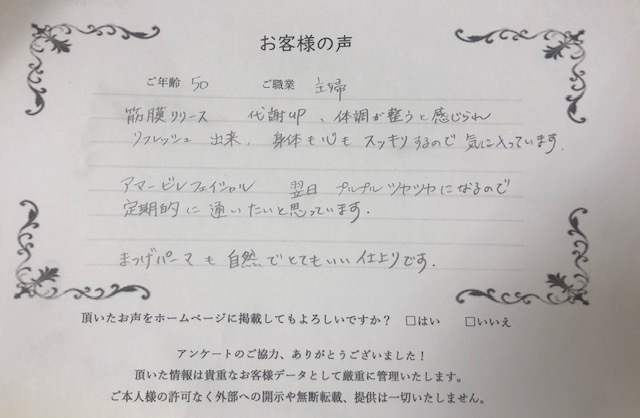 お客様の声
ご年齢 50 ご職業 主婦
筋膜リリース 代謝up、体調が整うと感じられ
リフレッシュ 出来、身体も心も スッキリするので 気に入っています.
アマービレフェイシャル 翌日 プルプルツヤツヤになるので
定期的に 通いたいと思っています.
まつげパーマ も 自然で とてもいい 仕上りです.
頂いたお声をホームページに掲載してもよろしいですか? □はい □いいえ
アンケートのご協力、ありがとうございました!
頂いた情報は貴重なお客様データとして厳重に管理いたします。
ご本人様の許可なく外部への開示や無断転載、提供は一切いたしません。